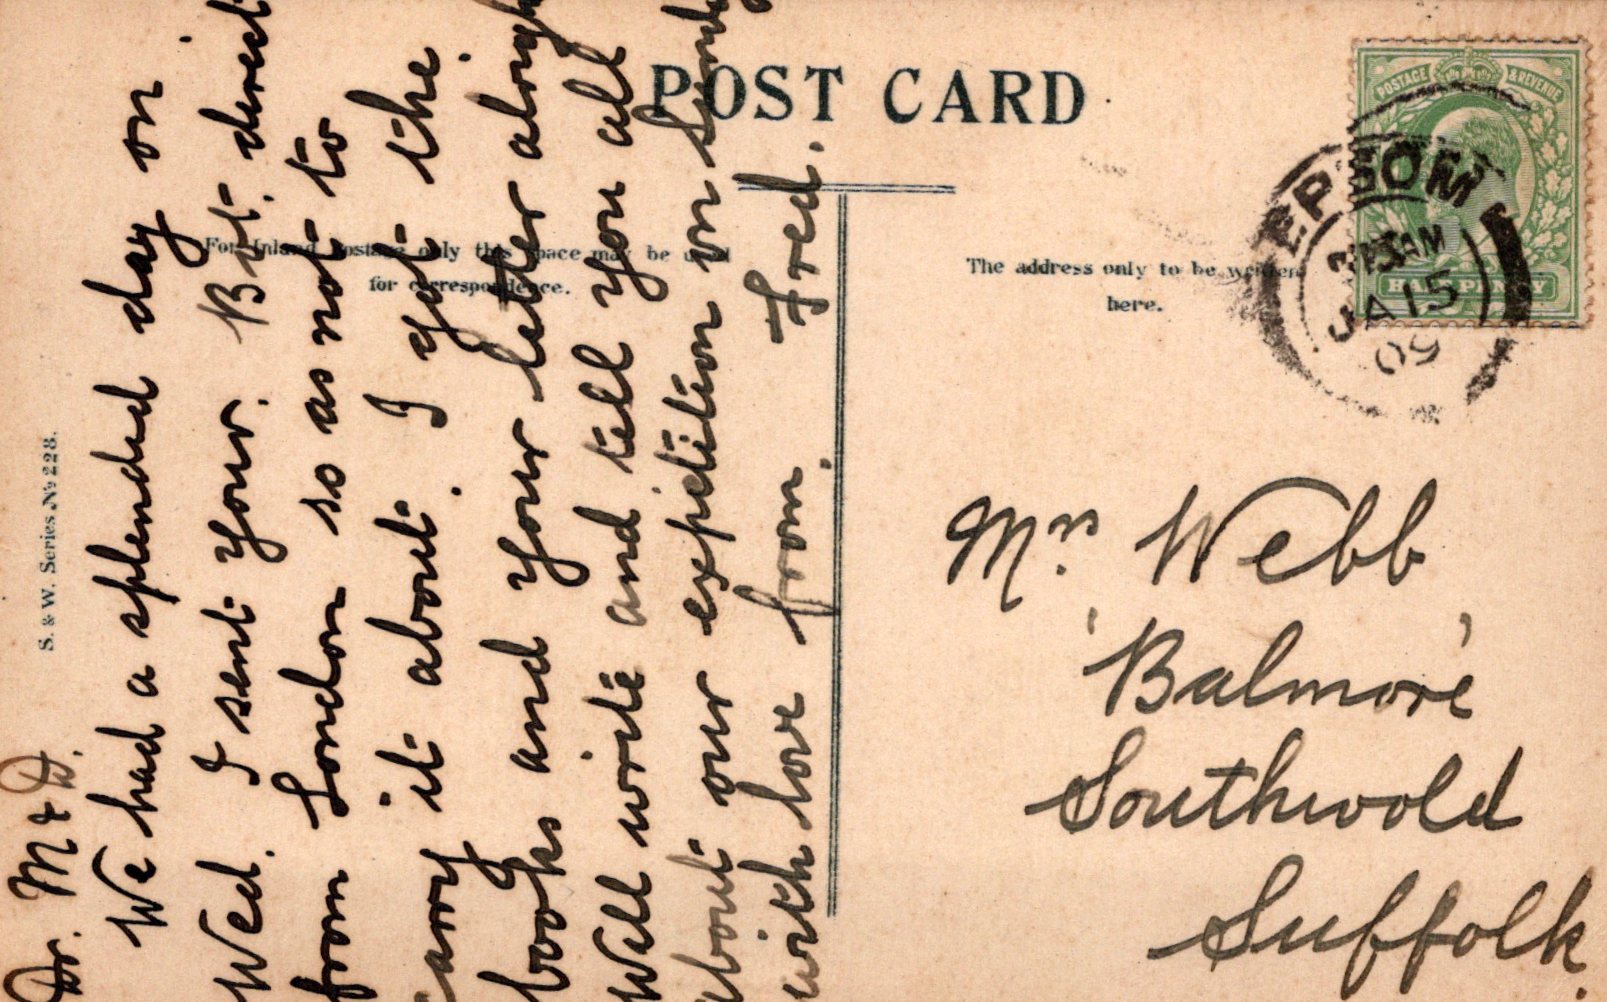 POST CARD
For Inland Postage only this space may be used
for correspondence.
The address only to be written
here.
S. & W. Series No 228.
POSTAGE & REVENUE
HALFPENNY
EPSOM
AM
JA 15
09
Dr. M & D.
We had a splended day on
Wed. I sent your. Bot. direct
from London so as not to
carry it about. I got the.
books and your letter alright
Will write and tell you all
about our expetition on Sunday
with love from. Fred.
Mrs. Webb
'Balmore'
Southwold
Suffolk.